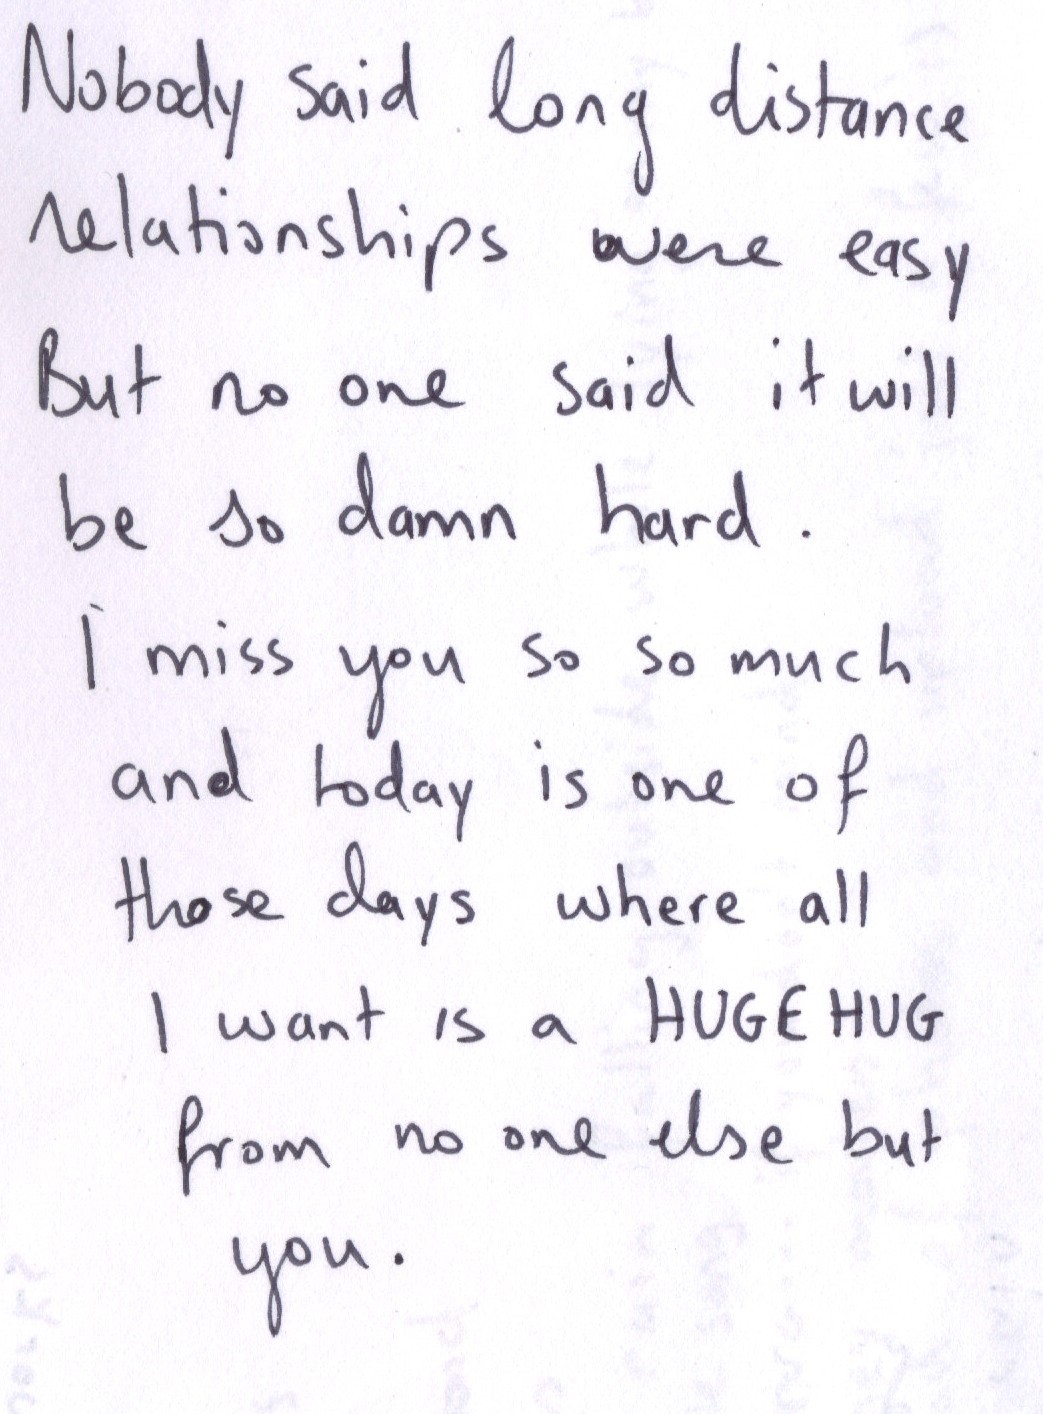 Nobody said long distance
relationships were easy
But no one said it will
be so damn hard.
I miss you so so much
and today is one of
those days where all
I want is a HUGE HUG
from no one else but
you.